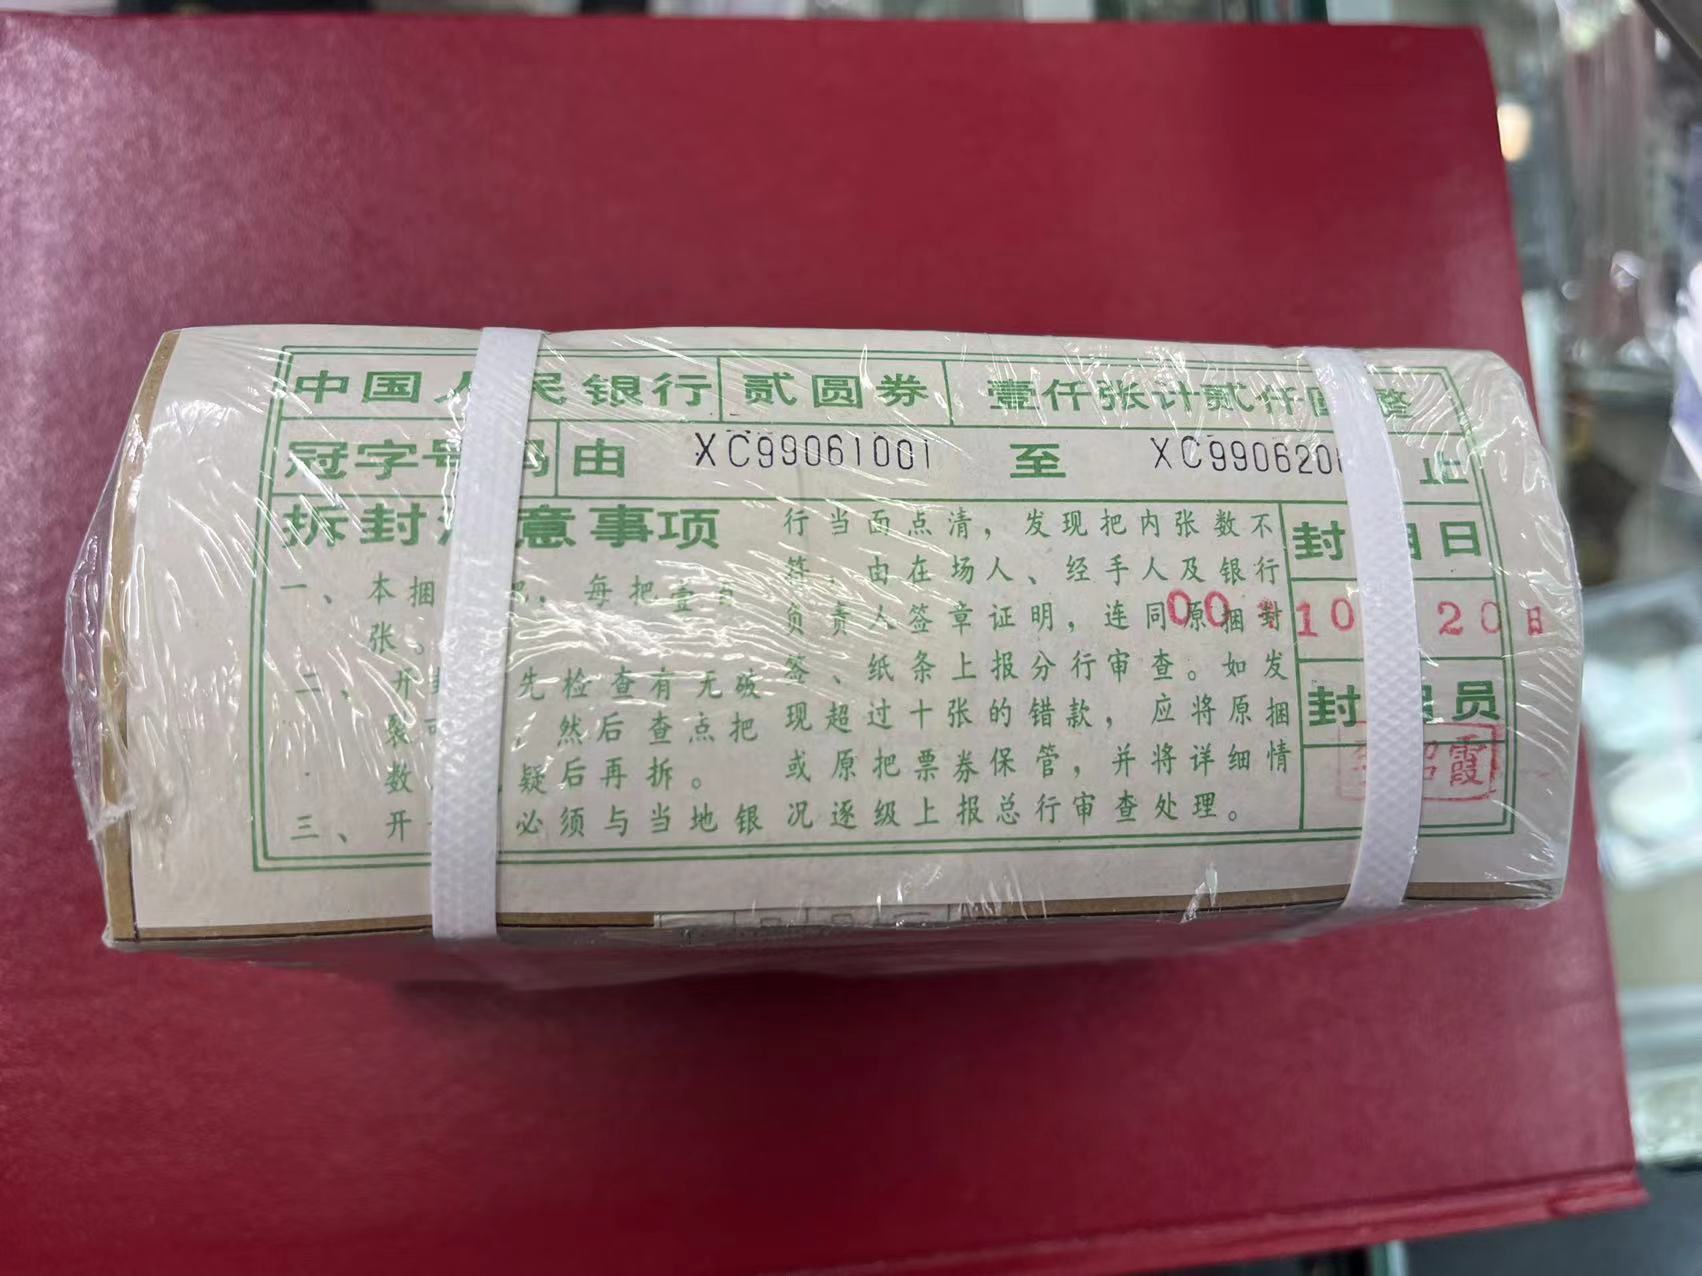 中国人民银行 贰圆券 壹仟张计贰仟圆整
冠字号码 由 XC99061001 至 XC990620 止
拆封 意事项
一、本捆 把，每把壹百
张。
二、开 先检查有无破
裂 ，然后查点把
数 疑后再拆。
三、开 必须与当地银
行当面点清，发现把内张数不
符，由在场人、经手人及银行
负责人签章证明，连同原捆封
签、纸条上报分行审查。如发
现超过十张的错款，应将原捆
或原把票券保管，并将详细情
况逐级上报总行审查处理。
封 日
00 10 20日
封 员
霞